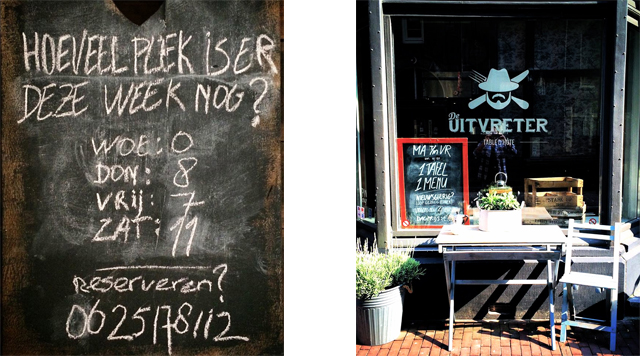 HOEVEEL PLEK IS ER
DEZE WEEK NOG?
WOE: 0
DON: 8
VRIJ: 7
ZAT: 11
RESERVEREN?
0625178112
De
UITVRETER
TABLE D'HÔTE
MA T/M VR
1 TAFEL
1 MENU